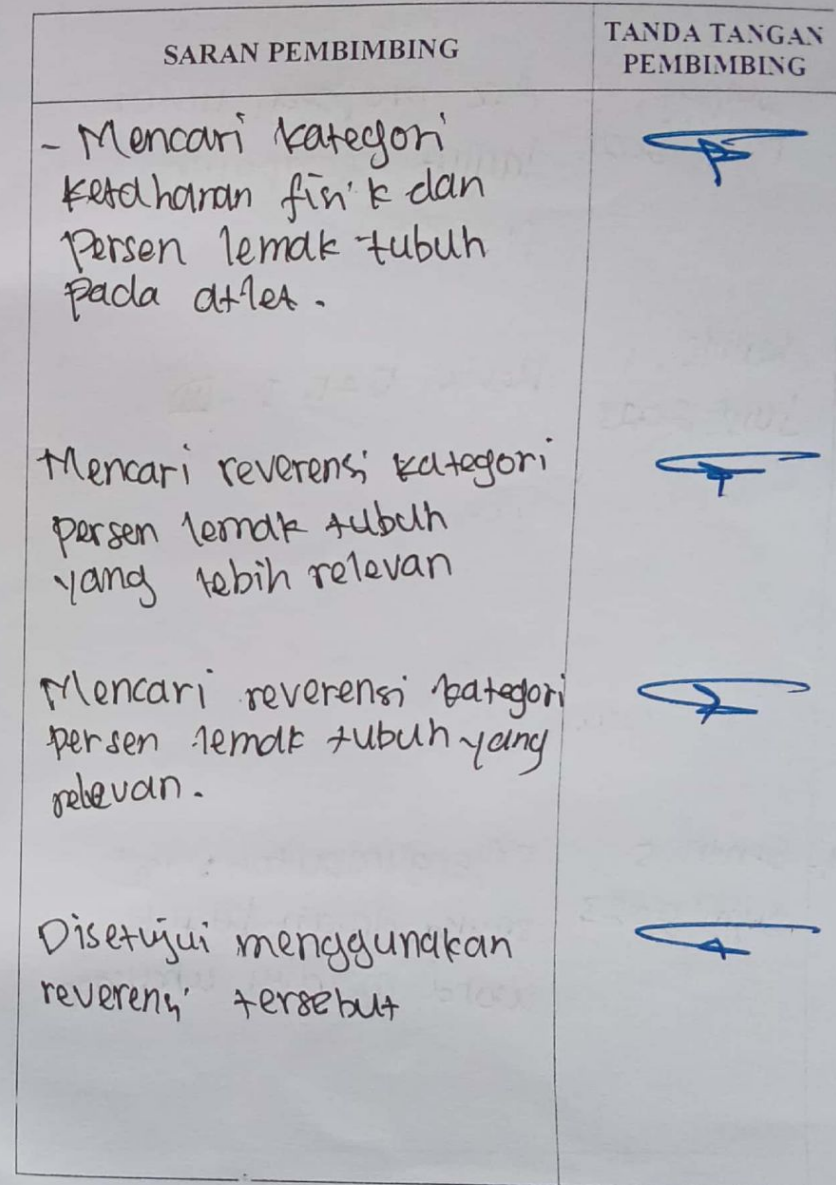 SARAN PEMBIMBING
TANDA TANGAN
PEMBIMBING
- Mencari kategori
ketahanan fisik dan
persen lemak tubuh
pada atlet.
Mencari reverensi kategori
persen lemak tubuh
yang lebih relevan
Mencari reverensi kategori
persen lemak tubuh yang
relevan.
Disetujui menggunakan
reverensi tersebut